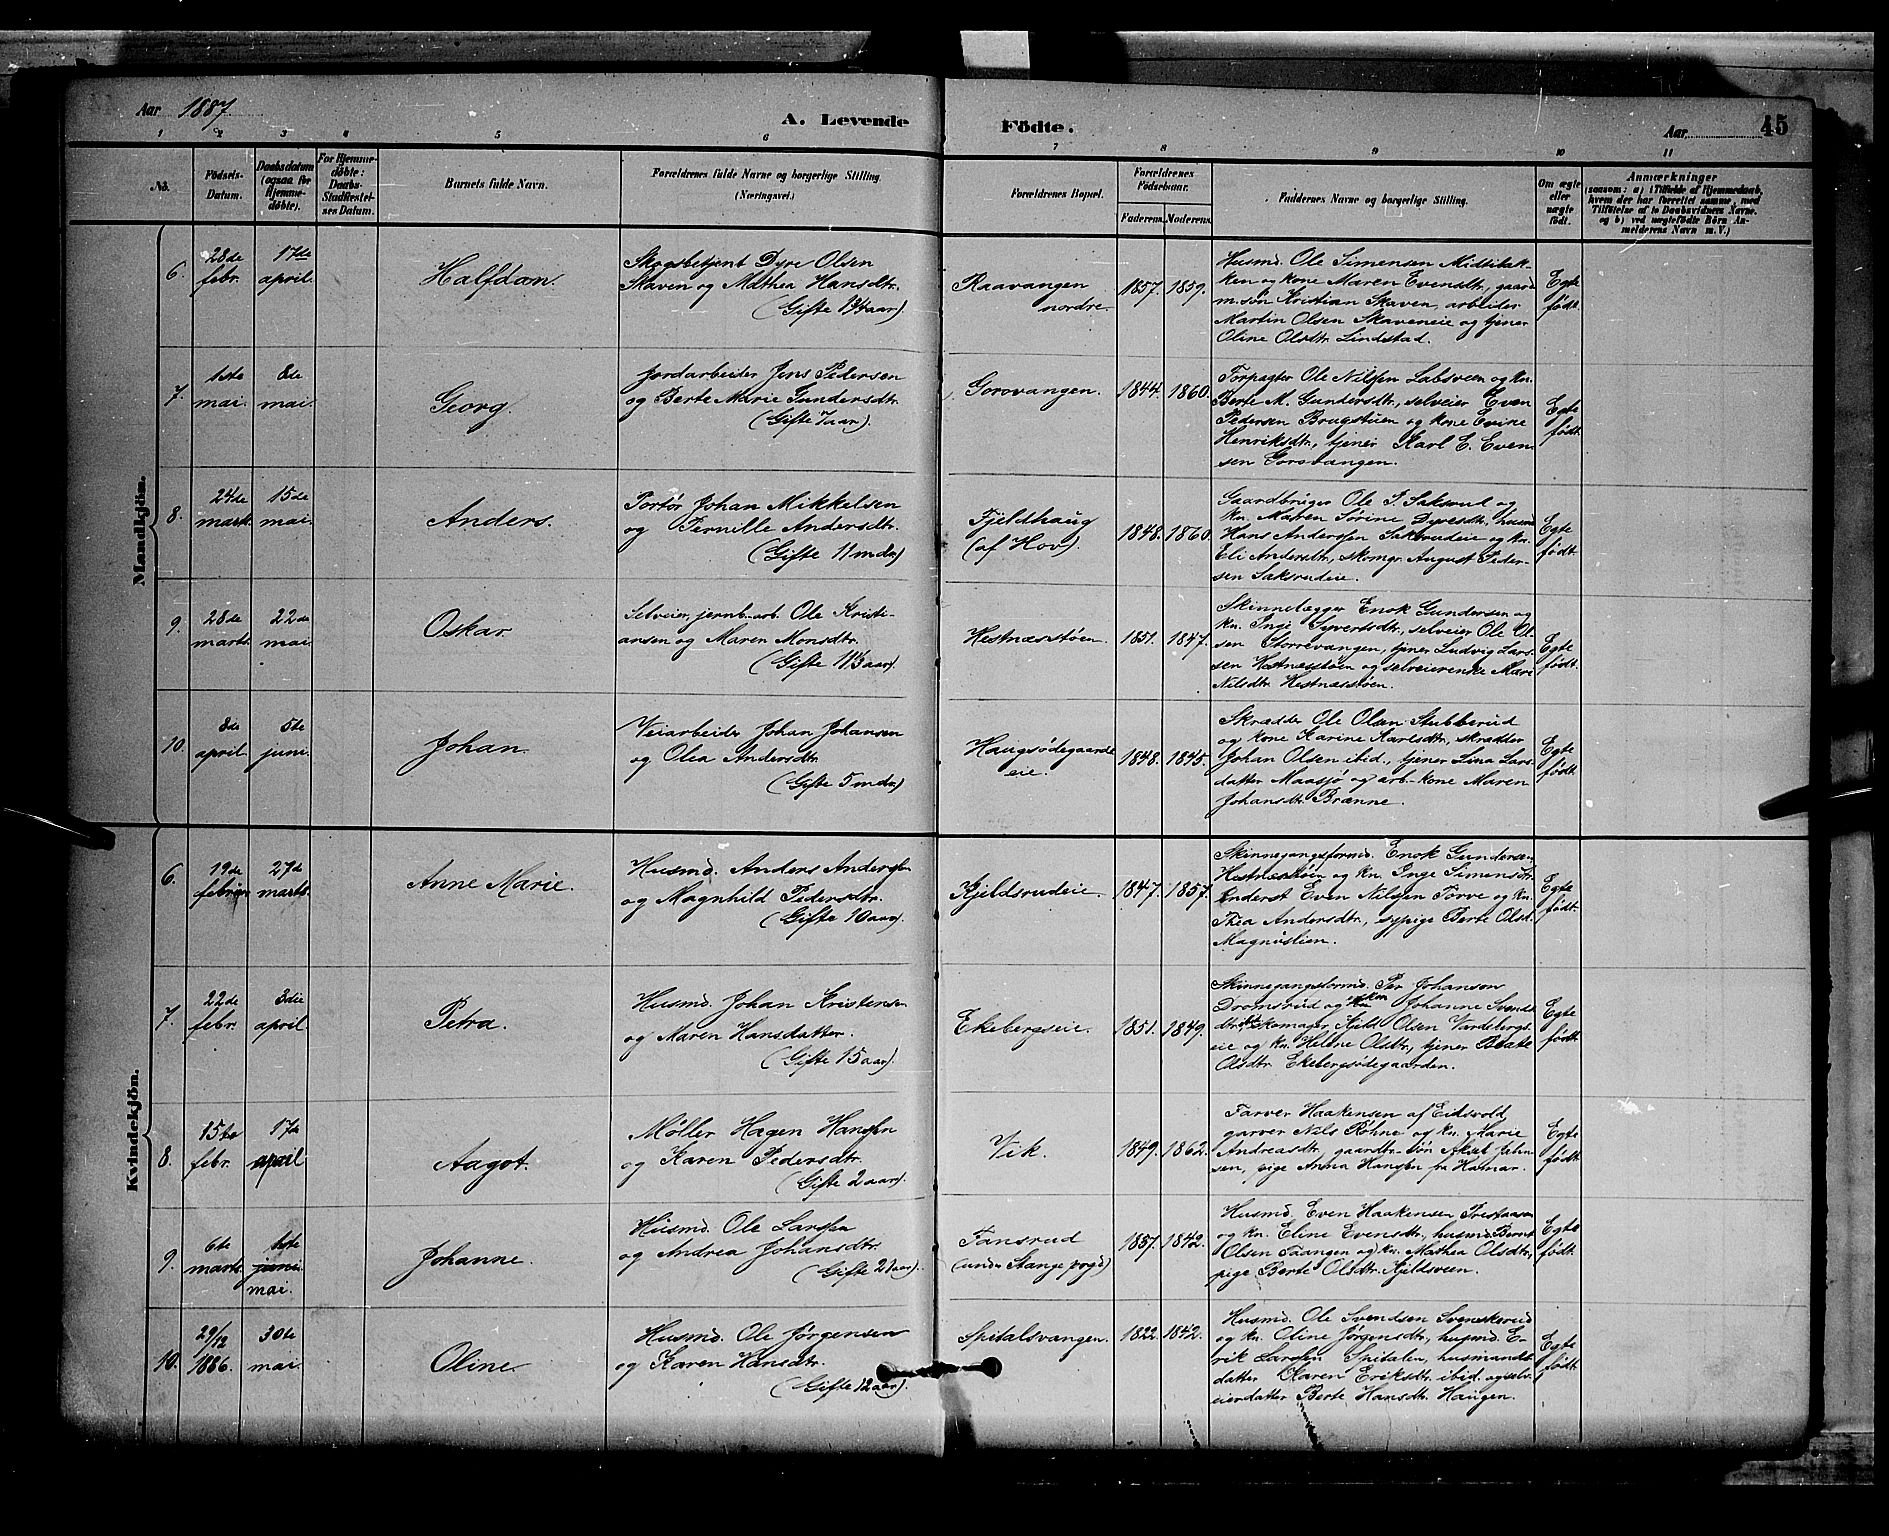 Aar 1887
A. Levende Födte.
Aar
45
1 2 3 4 5 6 7 8 9 10 11
No.
Födsels-Datum.
Daabsdatum (ogsaa for Hjemme-döbte).
For Hjemme-döbte: Daabs-Stadfæstel-ses Datum.
Barnets fulde Navn.
Forældrenes fulde Navne og borgerlige Stilling.
(Næringsvei.)
Forældrenes Bopæl.
Forældrenes Födselsaar.
Faderens. Moderens.
Faddernes Navne og borgerlige Stilling.
Om ægte eller uægte födt.
Anmærkninger
(saasom: a) i Tilfælde af Hjemmedaab,
hvem der har forrettet samme, med
Tilföielse af to Daabsvidners Navne.
og b) ved uægtefödte Börn An-
melderens Navn m. V.)
Mandkjön.
6.
28de febr.
17de april.
Halfdan.
Skogsbetjent Dyre Olsen
Skaven og Mathea Hansdtr.
(Gifte 1¾ aar)
Raavangen
nordre.
1857. 1859.
Husmd. Ole Simensen Midtibak-
ken og kone Maren Evensdtr, gaard
m.søn Kristian Skaven, arbeider
Martin Olsen Skaveneie og tjener
Oline Olsdtr. Lindstad.
Egte født.
7.
1ste mai.
8de mai.
Georg.
Jordarbeider Jens Pedersen
og Berte Marie Gundersdtr.
(Gifte 7 aar).
Gorovangen.
1844. 1860.
Forpagter Ole Nilssen Labsveen og kn.
Berte M. Gundersdtr, selveier Even
Pedersen Brugstuen og kone Evine
Henriksdtr, tjener Karl E. Even-
sen Gorovangen.
Egte født.
8.
24de marts.
15de mai.
Anders.
Portør Johan Mikkelsen
og Pernille Andersdtr.
(Gifte 11 mdr)
Fjeldhaug
(af Hov).
1848. 1860.
Gaardbruger Ole J. Saksrud og
kn. Maren Sørine Dyresdtr, husm
Hans Anderssen Saksrudeie og kn.
Eli Andersdtr, skomgr. August Peder-
sen Saksrudeie.
Egte født.
9.
28de marts.
22de mai.
Oskar.
Selveier, jernb.-arb. Ole Kristi-
ansen og Maren Monsdtr.
(Gifte 11½ aar)
Hestnæsstøen.
1851. 1847.
Skinnelægger Enok Gundersen og
kn. Inge Syvertsdtr, selveier Ole Ol-
sen Storrevangen, tjener Ludvig Lars-
sen Hestnæsstøen og selveierenke Mari
Nilsdtr. Hestnæsstøen.
Egte født.
10.
8de april.
5te juni.
Johan.
Veiarbeider Johan Johansen
og Olea Andersdtr.
(Gifte 5 mdr)
Haugsødegaards
eie.
1848. 1845.
Skrædder Ole Olsen Stubberud
og kone Karine Karlsdtr, skrædder
Johan Olsen ibid., tjener Lina Lars-
datter Maasjø og arb.-kone Maren
Johansdtr. Brænne.
Egte født.
Kvindekjön.
6.
19de februar
27de marts.
Anne Marie.
Husmd. Anders Anderssen
og Magnhild Pedersdtr.
(Gifte 10 aar)
Kjeldsrudeie.
1847. 1857.
Skinnegangsformd. Enok Gundersen
Hestnæsstøen og kn. Inge Simensdtr.
inderst Even Nilssen Torve og kn.
Thea Andersdtr, sypige Berte Olsdt.
Magnuslien.
Egte født.
7.
22de febr.
3die april.
Petra.
Husmd. Johan Kristensen
og Maren Hansdatter.
(Gifte 15 aar).
Ekebergseie.
1851. 1849.
Skinnegangsformd. Per Johansen
Dromsrud og kn Johanne Svends
dtr skomager Kjeld Olsen Vardebergs
eie og kn. Helene Olsdtr, tjener Beate
Olsdtr. Ekebergsødegaarden.
Egte født.
8.
15de febr.
17de april
Aagot.
Møller Hagen Hanssen
og Karen Pedersdtr.
(Gifte 2 aar).
Vik.
1849. 1862.
Farver Haakensen af Eidsvold,
garver Nils Røhne og kn. Marie
Andreasdtr, gaardm-søn Aksel Jahn-
sen, pige Anna Hanssen fra Hamar.
Egte født.
9.
6te marts.
1ste
juni
mai.
Johanne.
Husmd. Ole Larssen
og Andrea Johansdtr.
(Gifte 21 aar)
Tansrud
(under Stange prgd)
1837. 1842.
Husmd. Even Haakensen Prestaasen
og kn. Eline Evensdtr, husmd Bernt
Olsen Taangen og kn. Mathea Olsdtr,
pige Berte Olsdtr. Kjeldsveen.
Egte født.
10.
29/12 1886.
30te mai.
Oline.
Husmd. Ole Jørgensen
og Karen Hansdtr.
(Gifte 12 aar).
Spitalsvangen.
1822. 1842.
Husmd. Ole Svendsen Svenskerud
og kn. Oline Jørgensdtr, husmd. E-
rik Larssen Spitalen, husmands-
datter Karen Eriksdtr. ibid. og selv-
eierdatter Berte Hansdtr. Haugen.
Egte født.